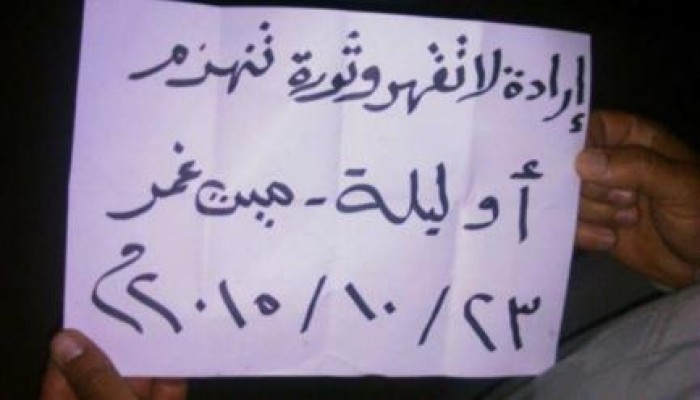 إرادة لا تقهر وثورة تنهزم
أوليلة - ميت غمر
٢٣/١٠/٢٠١٥م